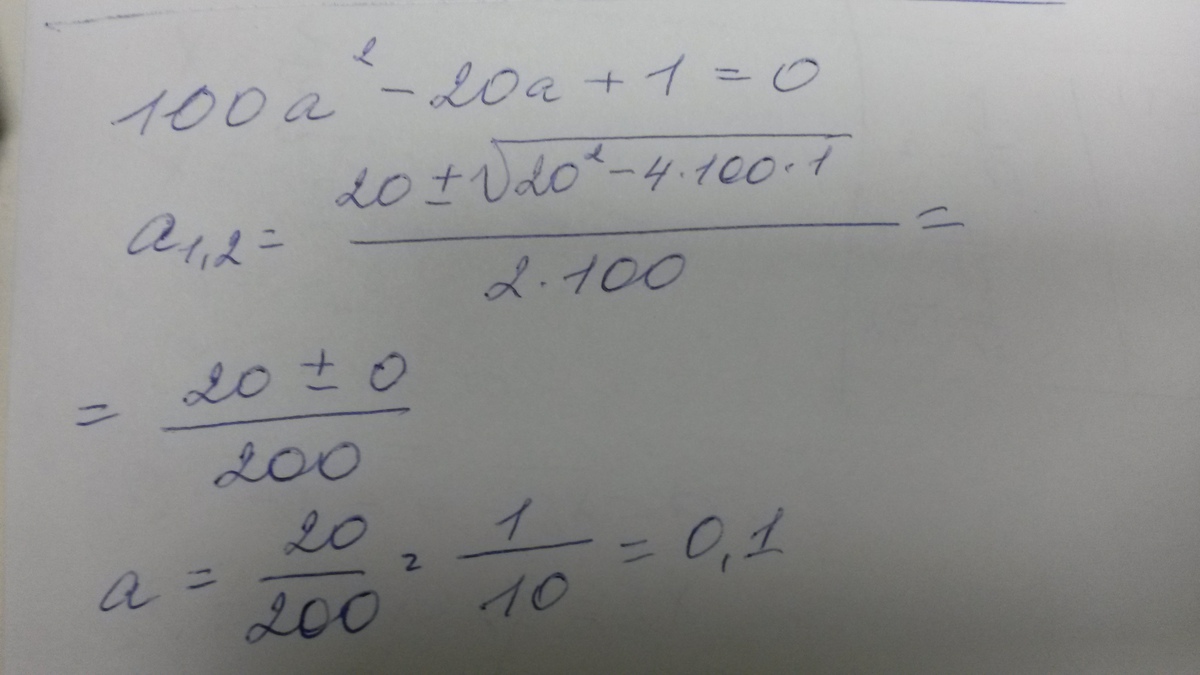 100a² - 20a + 1 = 0
a₁,₂ = (20 ± √(20² - 4·100·1)) / (2·100) =
= (20 ± 0) / 200
a = 20/200 = 1/10 = 0,1